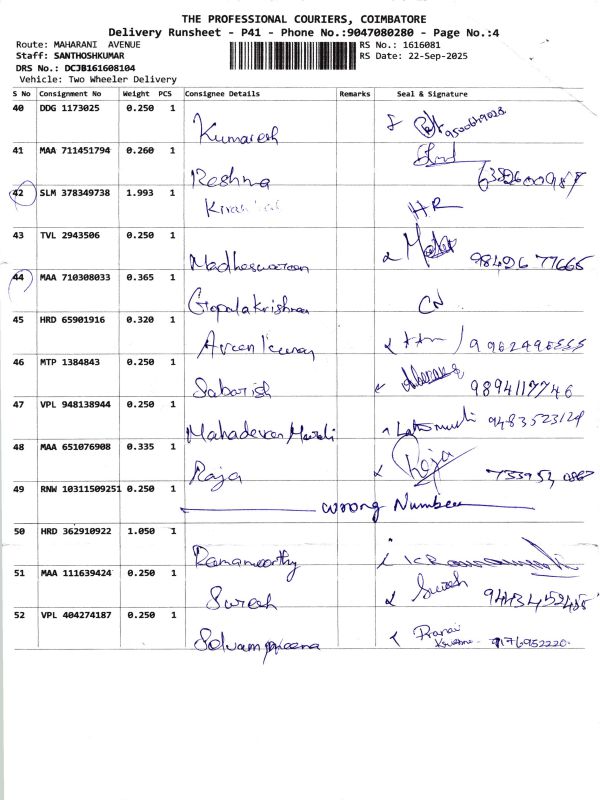 THE PROFESSIONAL COURIERS, COIMBATORE
Delivery Runsheet - P41 - Phone No.:9047080280 - Page No.:4
Route: MAHARANI AVENUE RS No.: 1616081
Staff: SANTHOSHKUMAR RS Date: 22-Sep-2025
DRS No.: DCJB161608104
Vehicle: Two Wheeler Delivery
S No Consignment No Weight PCS Consignee Details Remarks Seal & Signature
40 DDG 1173025 0.250 1
Kumaresh
41 MAA 711451794 0.260 1
Reshna
42 SLM 378349738 1.993 1
HR
43 TVL 2943506 0.250 1
Madheswaran 98426 77665
44 MAA 710308033 0.365 1
Gopalakrishnan CN
45 HRD 65901916 0.320 1
46 MTP 1384843 0.250 1
Sabarish 9894117746
47 VPL 948138944 0.250 1
Mahadevan 9483523124
48 MAA 651076908 0.335 1
Raja Raja
49 RNW 10311509251 0.250 1
wrong Number
50 HRD 362910922 1.050 1
Ramamoorthy
51 MAA 111639424 0.250 1
Suresh Suresh
52 VPL 404274187 0.250 1
Pranai
9176952220